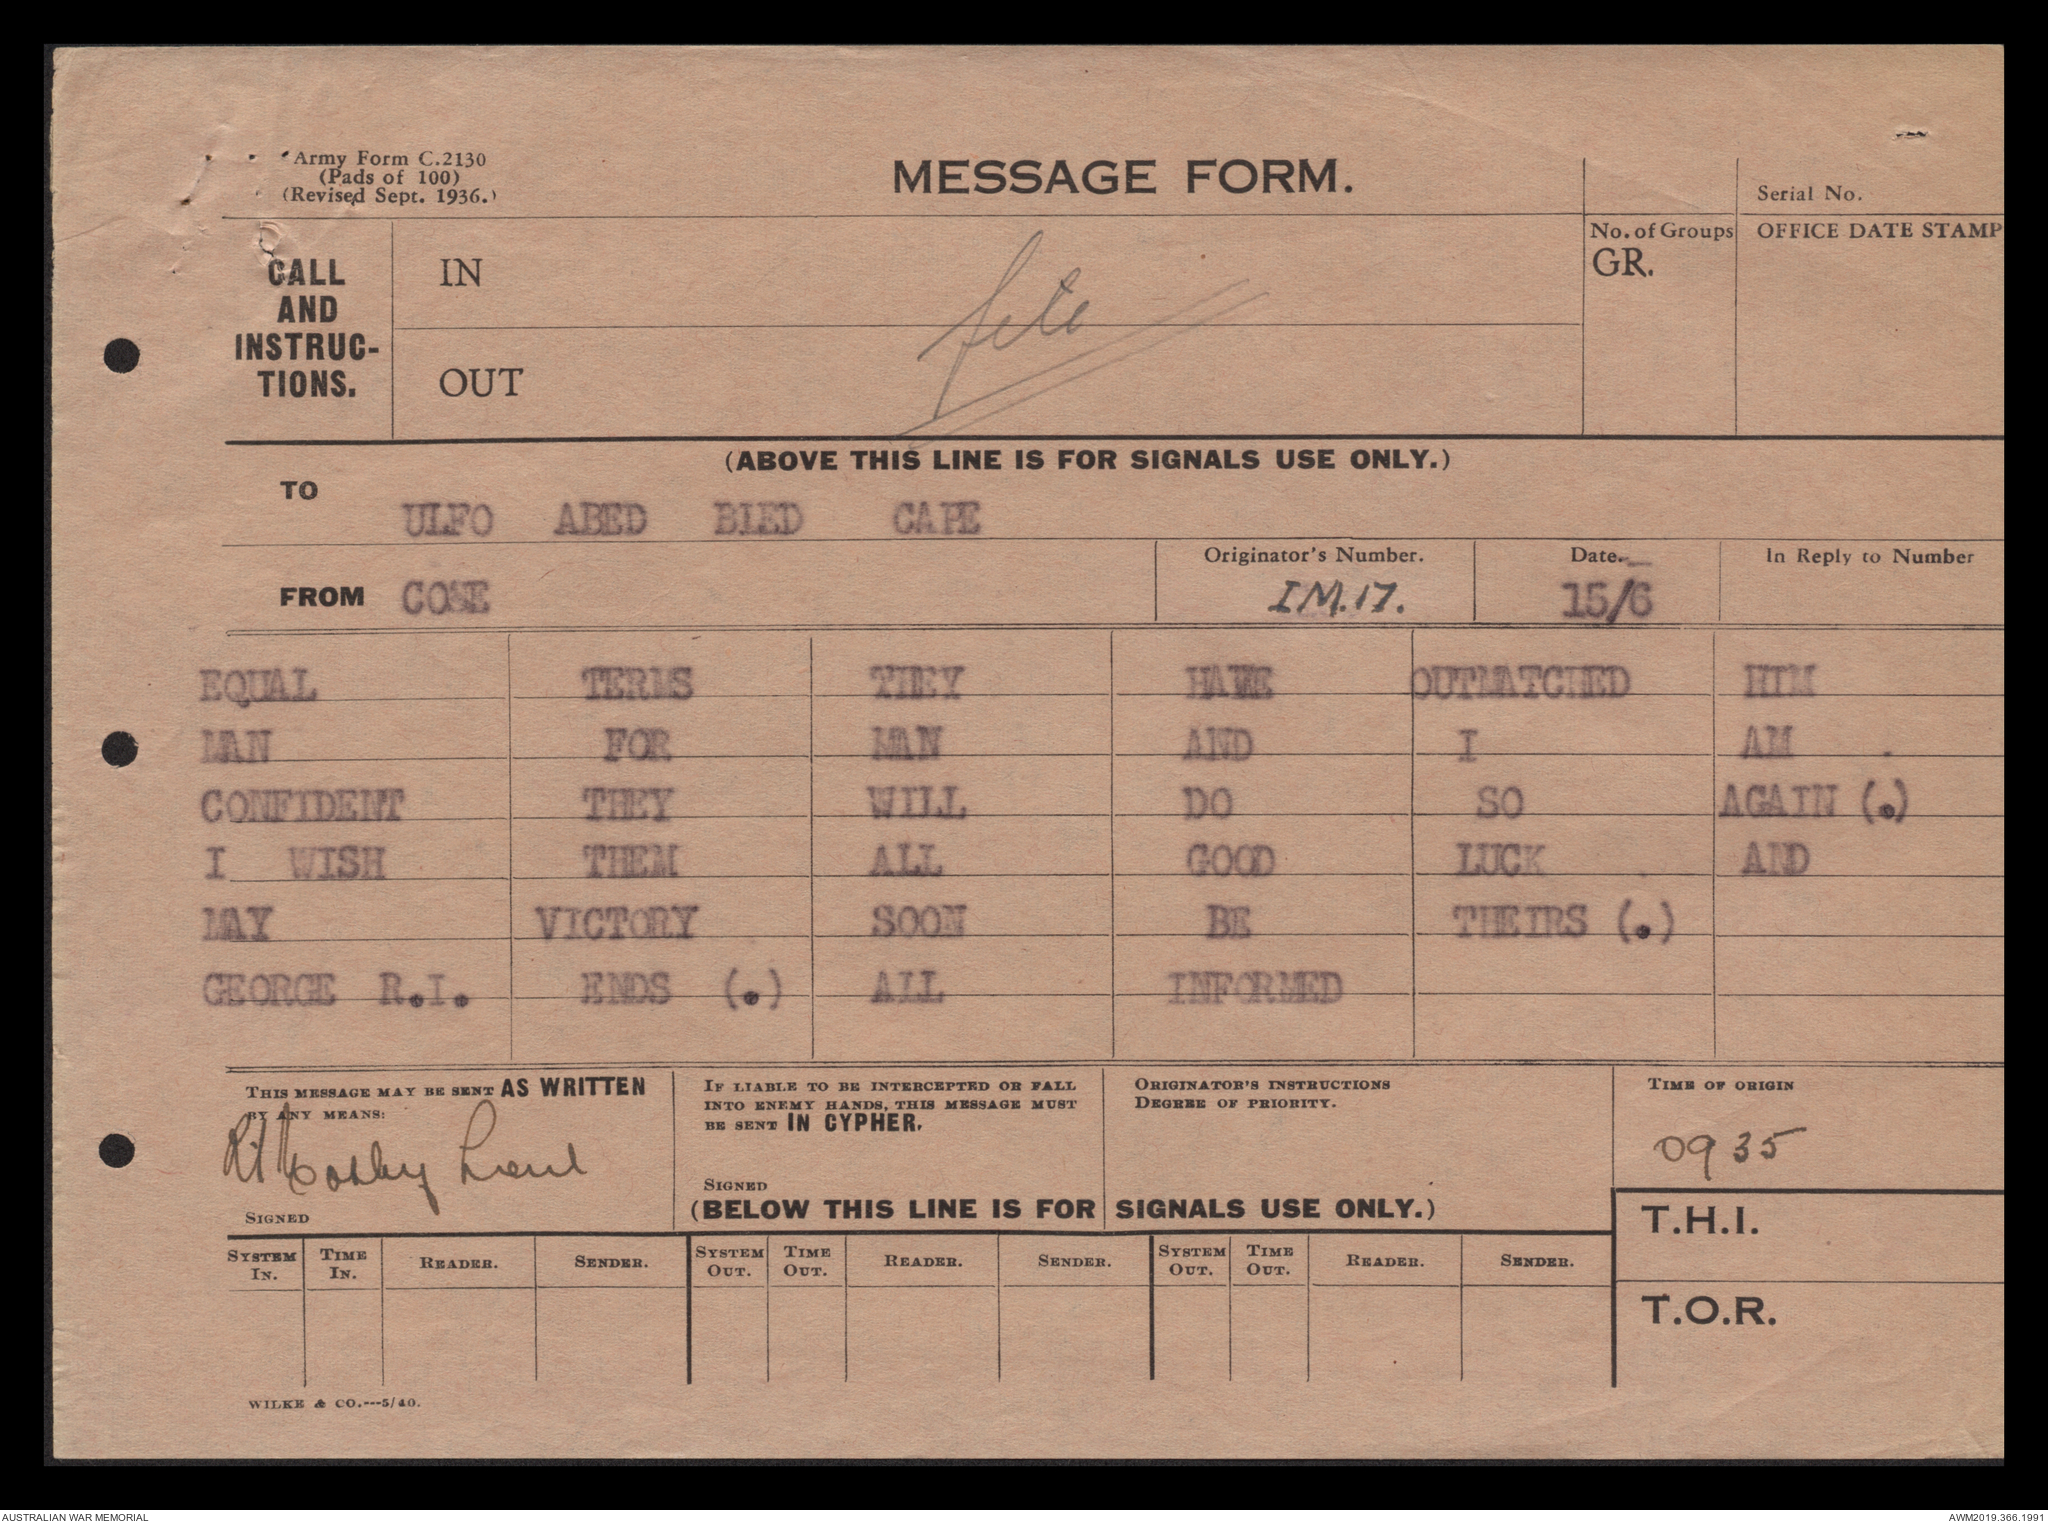 Army Form C.2130
(Pads of 100)
(Revised Sept. 1936.)
MESSAGE FORM.
Serial No.
CALL
AND
INSTRUC-
TIONS.
IN
OUT
file
No. of Groups
GR.
OFFICE DATE STAMP
(ABOVE THIS LINE IS FOR SIGNALS USE ONLY.)
TO
ULFO ABED BIED CAPE
FROM
Originator's Number.
IM.17.
Date.
15/6
In Reply to Number
EQUAL TERMS THEY HAVE OUTMATCHED HIM
MAN FOR MAN AND I AM
CONFIDENT THEY WILL DO SO AGAIN (.)
I WISH THEM ALL GOOD LUCK AND
MAY VICTORY SOON BE THEIRS (.)
GEORGE R.I. ENDS (.) ALL INFORMED
THIS MESSAGE MAY BE SENT AS WRITTEN
BY ANY MEANS:
Lieut
SIGNED
IF LIABLE TO BE INTERCEPTED OR FALL
INTO ENEMY HANDS, THIS MESSAGE MUST
BE SENT IN CYPHER.
SIGNED
ORIGINATOR'S INSTRUCTIONS
DEGREE OF PRIORITY.
TIME OF ORIGIN
0935
(BELOW THIS LINE IS FOR SIGNALS USE ONLY.)
T.H.I.
T.O.R.
SYSTEM IN. TIME IN. READER. SENDER. SYSTEM OUT. TIME OUT. READER. SENDER. SYSTEM OUT. TIME OUT. READER. SENDER.
WILKE & CO.---5/40.
AUSTRALIAN WAR MEMORIAL
AWM2019.366.1991